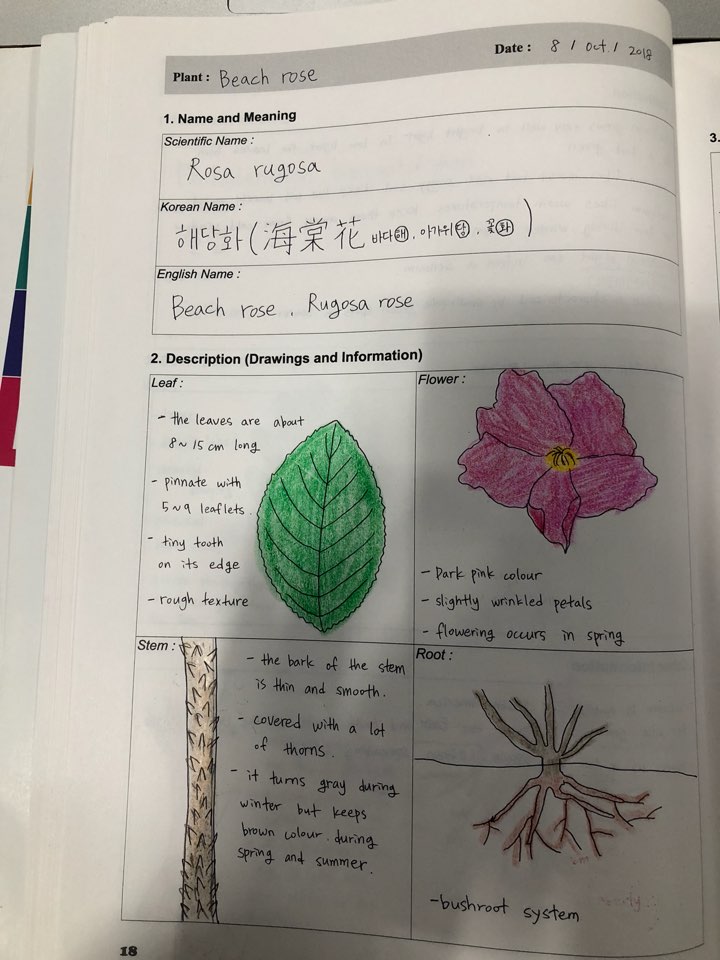 Date : 8 / Oct. / 2018
Plant : Beach rose
1. Name and Meaning
Scientific Name :
Rosa rugosa
Korean Name :
해당화 ( 海棠花 바다해, 아가위당, 꽃화 )
English Name :
Beach rose , Rugosa rose
2. Description (Drawings and Information)
Leaf :
- the leaves are about
8 ~ 15 cm long
- pinnate with
5 ~ 9 leaflets.
- tiny tooth
on its edge
- rough texture
Flower :
- Dark pink colour
- slightly wrinkled petals
- flowering occurs in spring
Stem :
- the bark of the stem
is thin and smooth.
- covered with a lot
of thorns.
- it turns gray during
winter but keeps
brown colour during
spring and summer.
Root :
- bushroot system
18
3.